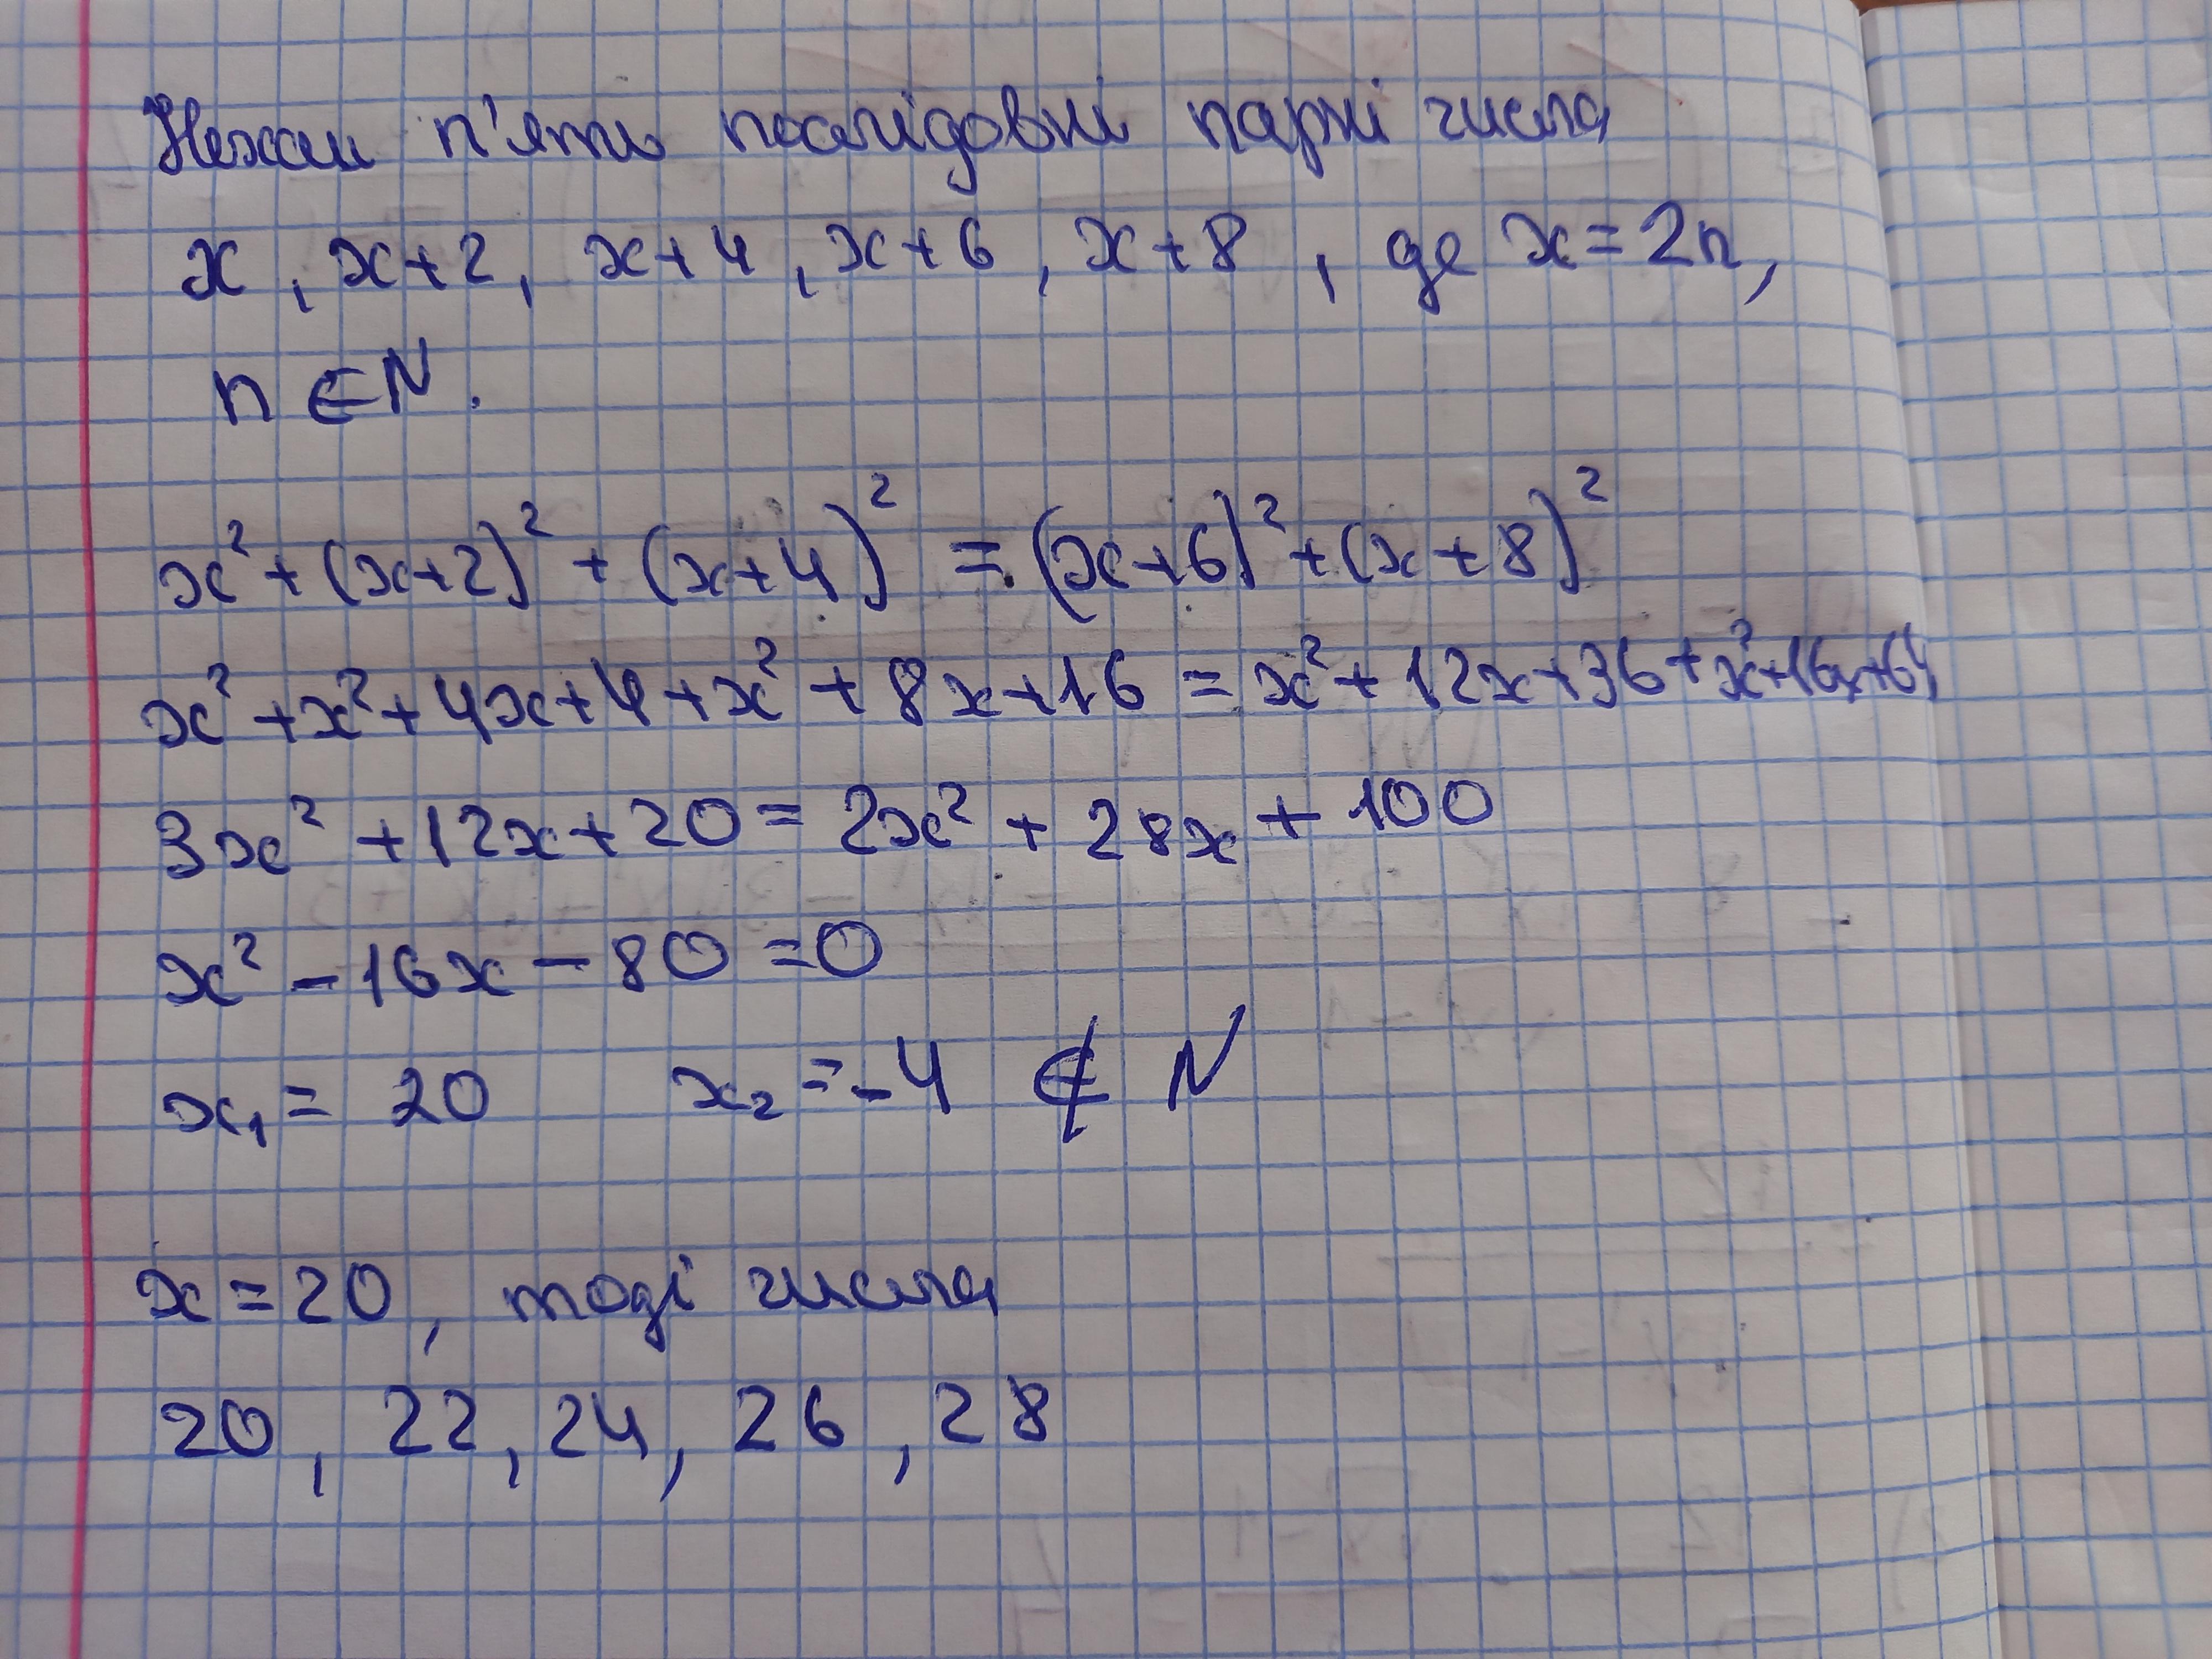 Нехай п'яти послідовні парні числа
x, x+2, x+4, x+6, x+8, де x=2n,
n∈N.
x²+(x+2)²+(x+4)²=(x+6)²+(x+8)²
x²+x²+4x+4+x²+8x+16=x²+12x+36+x²+16x+64
3x²+12x+20=2x²+28x+100
x²-16x-80=0
x₁=20 x₂=-4 ∉ N
x=20, тоді числа
20, 22, 24, 26, 28